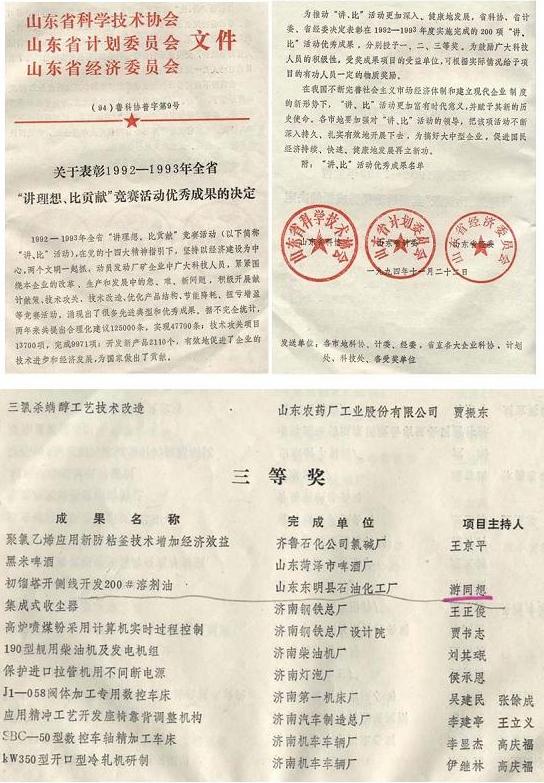 山东省科学技术协会
山东省计划委员会 文件
山东省经济委员会
(94)鲁科协普字第9号
关于表彰1992—1993年全省
“讲理想、比贡献”竞赛活动优秀成果的决定
1992—1993年全省“讲理想、比贡献”竞赛活动(以下简称
“讲、比”活动),在党的十四大精神指引下,坚持以经济建设为中
心,两个文明一起抓,动员发动厂矿企业中广大科技人员,紧紧围
绕本企业的改革、生产和发展中的急、难、新问题,积极开展献
计献策、技术攻关、技术改造、优化产品结构、节能降耗、扭亏增盈
等竞赛活动,涌现出了很多先进典型和优秀成果。据不完全统计,
两年来共提出合理化建议125000条,实现47790条;技术攻关项目
13700项,完成9971项;开发新产品2110个,有效地促进了企业的
技术进步和经济发展,为国家做出了贡献。
为推动“讲、比”活动更加深入、健康地发展,省科协、省计
委、省经委决定表彰在1992—1993年度实施完成的200项“讲、
比”活动优秀成果,分别授予一、二、三等奖。为鼓励广大科技
人员的积极性,受奖成果项目的受益单位,可根据实际情况给予项
目的有功人员一定的物质奖励。
在我国不断完善社会主义市场经济体制和建立现代企业制度
的新形势下,“讲、比”活动更加富有时代意义,并赋予其新的历
史使命。各市地要加强对“讲、比”活动的领导,把该项活动不断
深入持久、扎实有效地开展下去,为搞好大中型企业,促进国民
经济持续、快速、健康地发展再立新功。
附:“讲、比”活动优秀成果名单
山东省科学技术协会 山东省计划委员会 山东省经济委员会
山东省科协 山东省计委 山东省经委
一九九四年十一月二十二日
发送单位:各市地科协、计委、经委,省直各大企业科协、计划
处、科技处、各受奖单位
三氯杀螨醇工艺技术改造 山东农药厂工业股份有限公司 贾振东
三等奖
成果名称 完成单位 项目主持人
聚氯乙烯应用新防粘釜技术增加经济效益 齐鲁石化公司氯碱厂 王京平
黑米啤酒 山东菏泽市啤酒厂
初馏塔开侧线开发200#溶剂油 山东东明县石油化工厂 游同想
集成式收尘器 济南钢铁总厂 王正俊
高炉喷煤粉采用计算机实时过程控制 济南钢铁总厂设计院 贾书志
190型舰用柴油机及发电机组 济南柴油机厂 刘其珉
保护进口拉管机用不间断电源 济南灯泡厂 侯承恩
J1—058阀体加工专用数控车床 济南第一机床厂 吴建民 张徐成
应用精冲工艺开发座椅靠背调整机构 济南汽车制造总厂 李建亭 王立义
SBC—50型数控车轴精加工车床 济南机车车辆厂 李昱杰 高庆福
kW350型开口型冷轧机研制 济南机车车辆厂 伊继林 高庆福